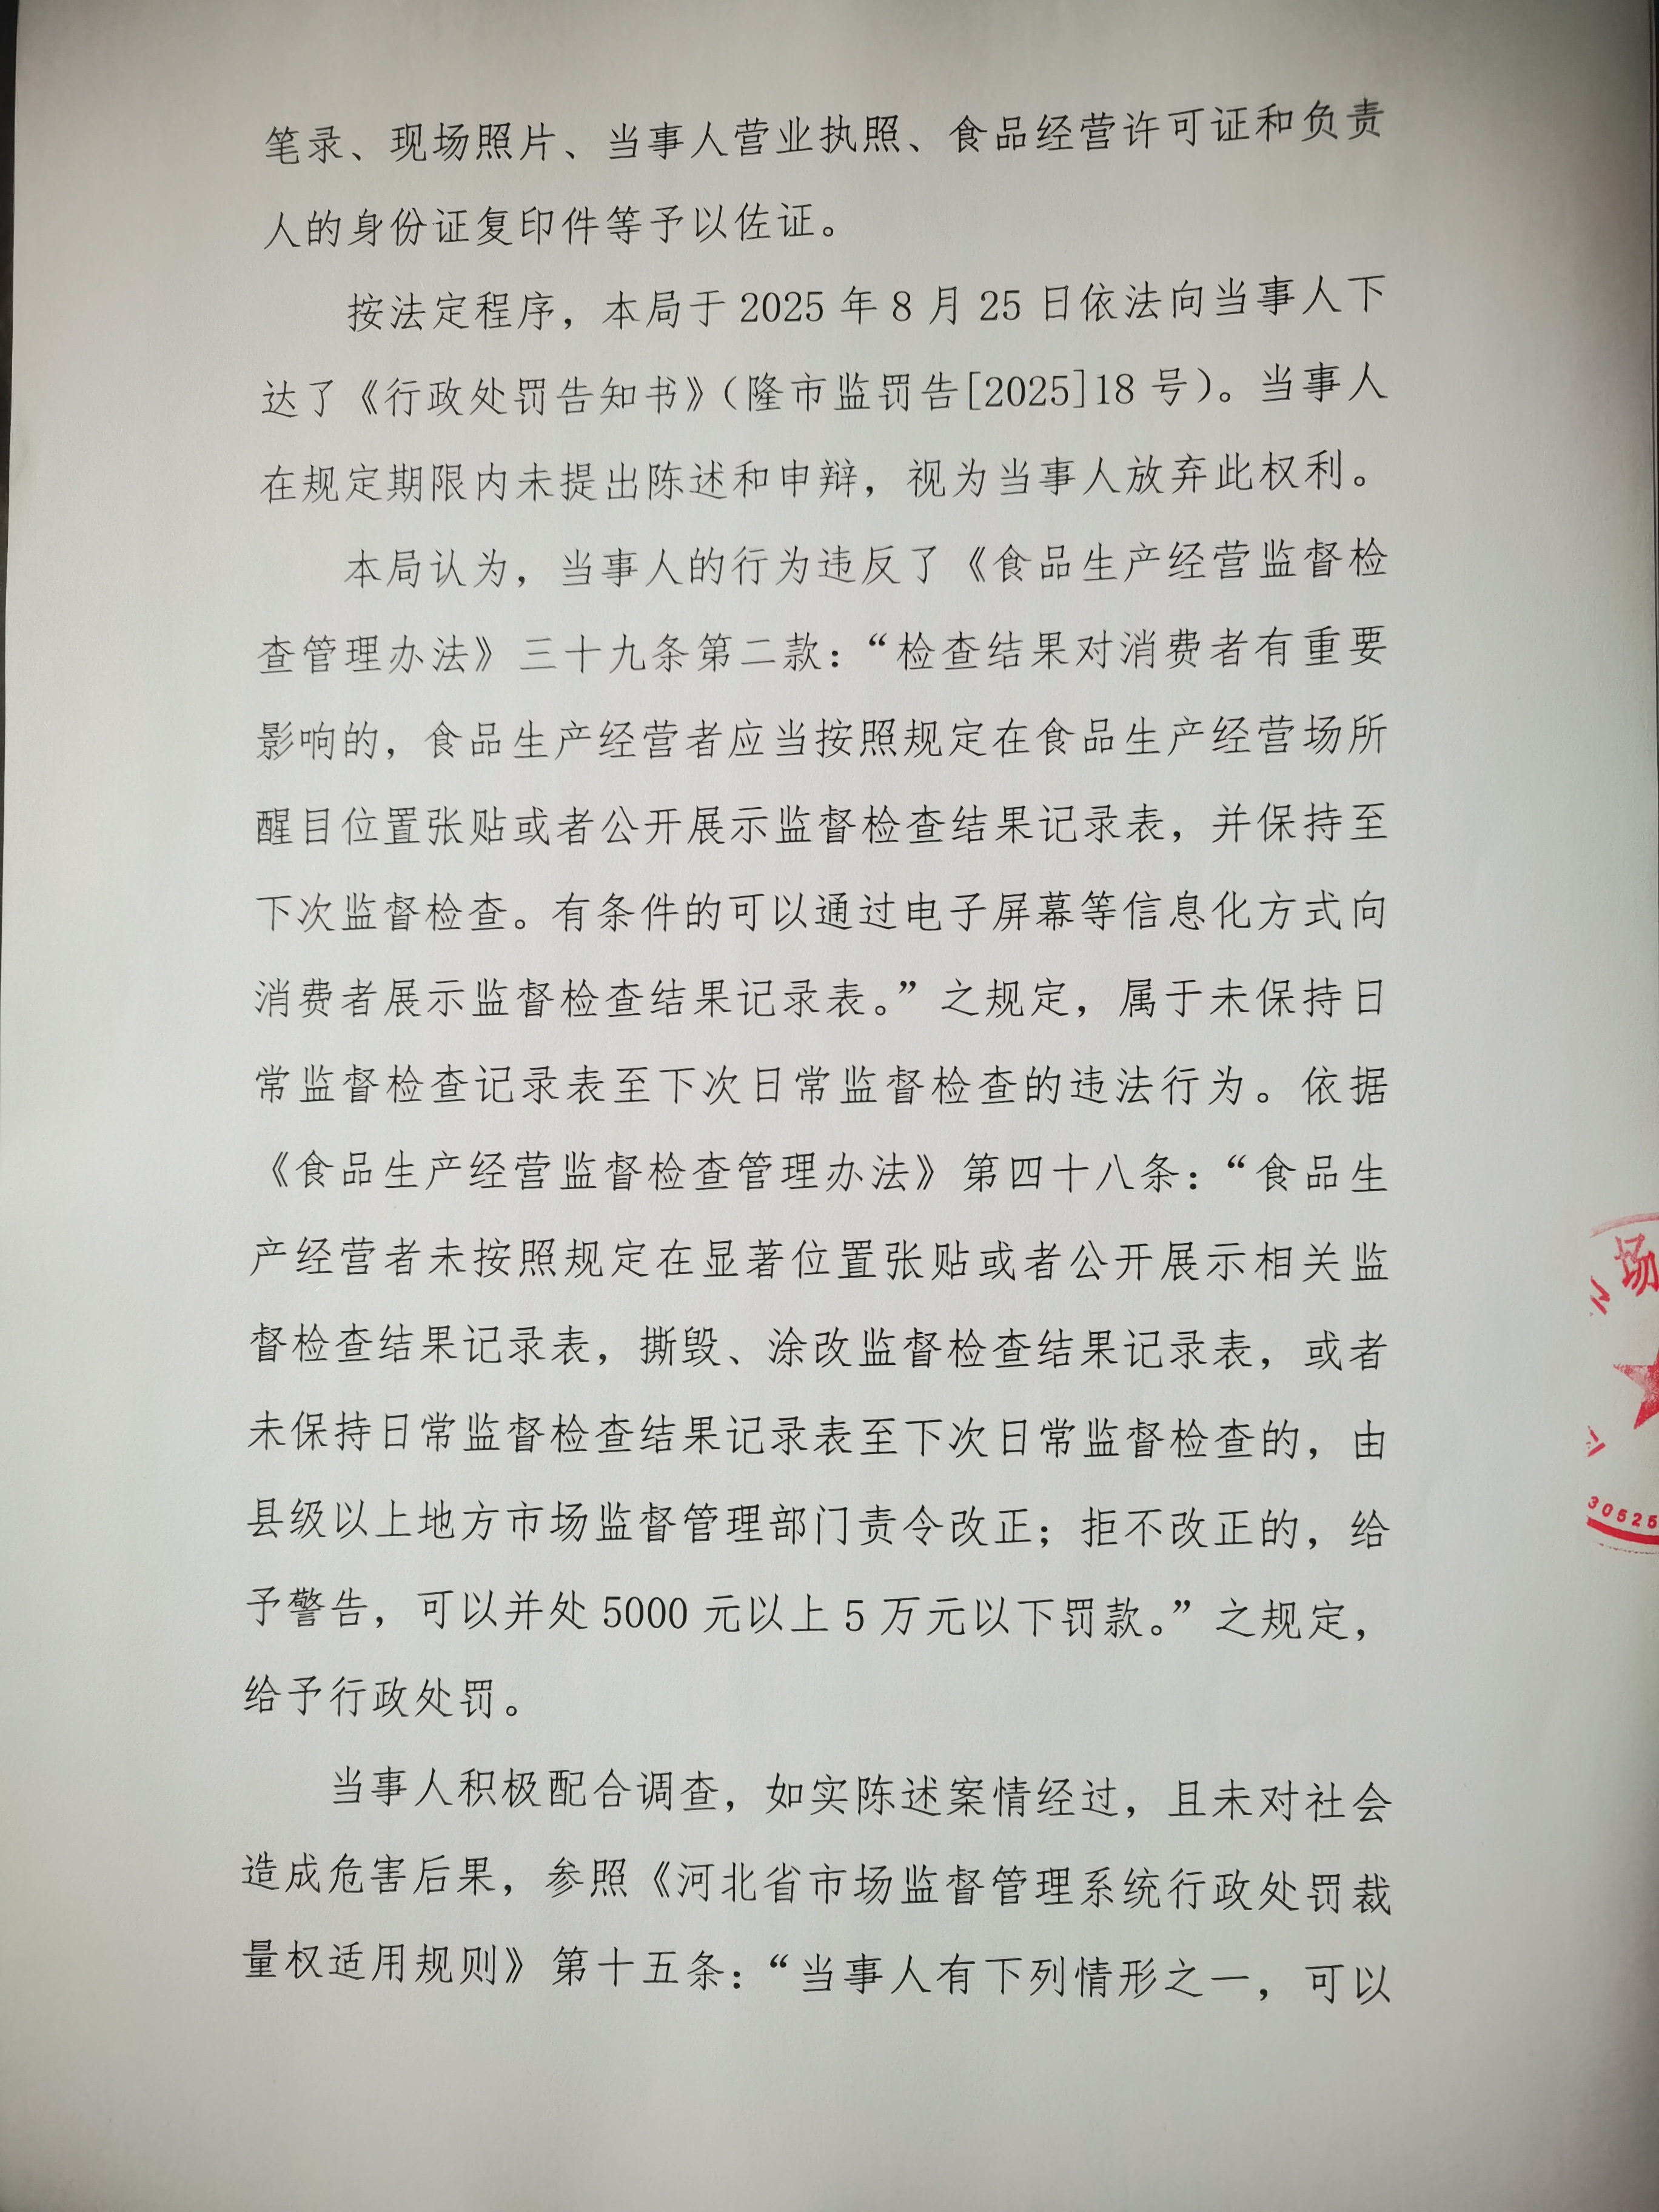 笔录、现场照片、当事人营业执照、食品经营许可证和负责
人的身份证复印件等予以佐证。
按法定程序，本局于 2025 年 8 月 25 日依法向当事人下
达了《行政处罚告知书》（隆市监罚告[2025]18 号）。当事人
在规定期限内未提出陈述和申辩，视为当事人放弃此权利。
本局认为，当事人的行为违反了《食品生产经营监督检
查管理办法》三十九条第二款：“检查结果对消费者有重要
影响的，食品生产经营者应当按照规定在食品生产经营场所
醒目位置张贴或者公开展示监督检查结果记录表，并保持至
下次监督检查。有条件的可以通过电子屏幕等信息化方式向
消费者展示监督检查结果记录表。”之规定，属于未保持日
常监督检查记录表至下次日常监督检查的违法行为。依据
《食品生产经营监督检查管理办法》第四十八条：“食品生
产经营者未按照规定在显著位置张贴或者公开展示相关监
督检查结果记录表，撕毁、涂改监督检查结果记录表，或者
未保持日常监督检查结果记录表至下次日常监督检查的，由
县级以上地方市场监督管理部门责令改正；拒不改正的，给
予警告，可以并处 5000 元以上 5 万元以下罚款。”之规定，
给予行政处罚。
当事人积极配合调查，如实陈述案情经过，且未对社会
造成危害后果，参照《河北省市场监督管理系统行政处罚裁
量权适用规则》第十五条：“当事人有下列情形之一，可以
场
30525